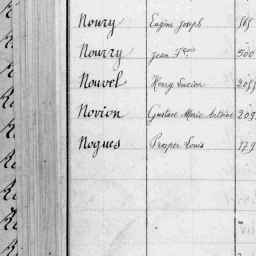 Noury Eugène Joseph 565
Nourry Jean Fçois 500
Nouvel Henry Lucien 205
Novion Gustave Marie Antoine 209
Nogues Prosper Louis 179